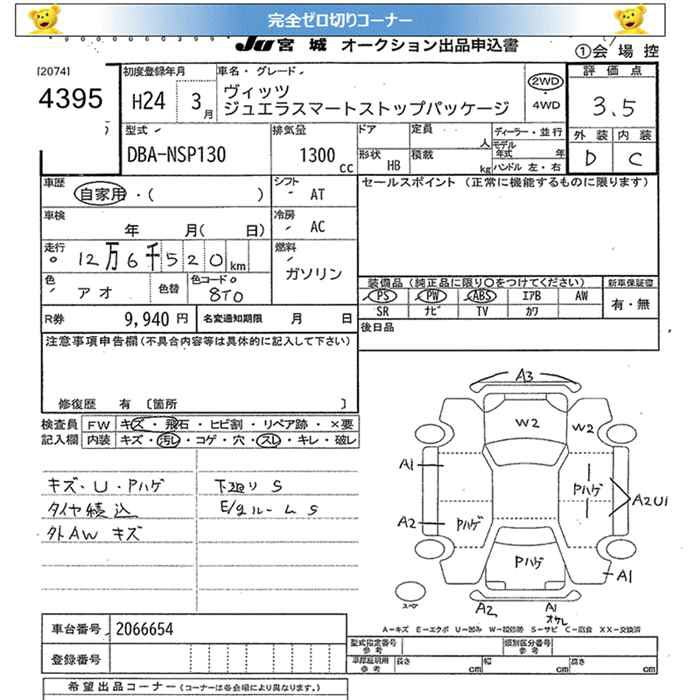 完全ゼロ切りコーナー
JU 宮城 オークション出品申込書
①会場控
[2074]
4395
初度登録年月
H24 3月
車名・グレード
ヴィッツ
ジュエラスマートストップパッケージ
2WD
4WD
評価点
3.5
外装 内装
D C
型式
DBA-NSP130
排気量
1300 cc
ドア
形状 HB
定員 人
積載 kg
ディーラー・並行
モデル年式 年
ハンドル 左・右
車歴
自家用・( )
シフト
AT
セールスポイント (正常に機能するものに限ります)
車検
年 月( 日)
冷房
AC
走行
12万6千520km
燃料
ガソリン
色
アオ
色替
色コード
8T0
装備品 (純正品に限り○をつけてください)
新車保証書
PS PW ABS エアB AW
SR ナビ TV カワ
有・無
R券 9,940 円
名変通知期限 月 日
後日品
注意事項申告欄 (不具合内容等は具体的に記入して下さい)
修復歴 有 〔箇所 〕
検査員記入欄
FW キズ・飛石・ヒビ割・リペア跡・×要
内装 キズ・汚レ・コゲ・穴・スレ・キレ・破レ
キズ・U・Pハゲ
下廻り S
タイヤ積込
E/gルーム S
外AW キズ
A3
W2
W2
A1
Pハゲ
A2U1
A2
Pハゲ
Pハゲ
A1
スペア
A2
A1
オケレ
A-キズ E-エクボ U-凹み W-補修跡 S-サビ C-腐食 XX-交換済
車台番号 2066654
登録番号
型式指定番号 参考
類別区分番号 参考
車庫証明用 参考
長さ cm
幅 cm
高さ cm
希望出品コーナー (コーナーは各会場により異なります。)